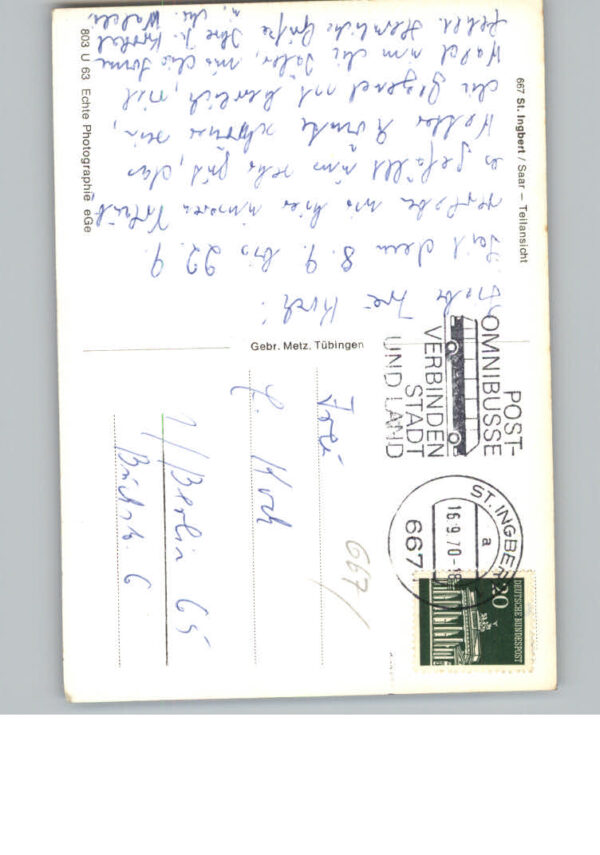 667 St. Ingbert / Saar – Teilansicht
Seit dem 8. 9. bis 22. 9.
wir hier unseren Urlaub
es gefällt uns sehr gut, das
Wetter könnte schöner sein,
die Gegend ist herrlich, viel
Wald um die Saar, nur die Sonne
fehlt. Herzliche Grüße Ihre
803 U 63 Echte Photographie eGe
Gebr. Metz, Tübingen
POST-
OMNIBUSSE
VERBINDEN
STADT
UND LAND
ST. INGBERT
a
16.9.70-18
667
DEUTSCHE BUNDESPOST
20
667/
Frau
Koch
1/Berlin 65
6